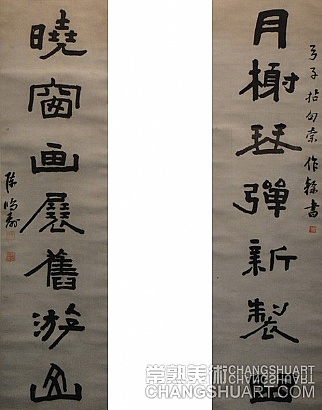 月榭琴彈新製曲
作隸書
曉窗画展舊游山
陳鴻壽
常熟美術 CHANGSHUART
CHANGSHUART.COM